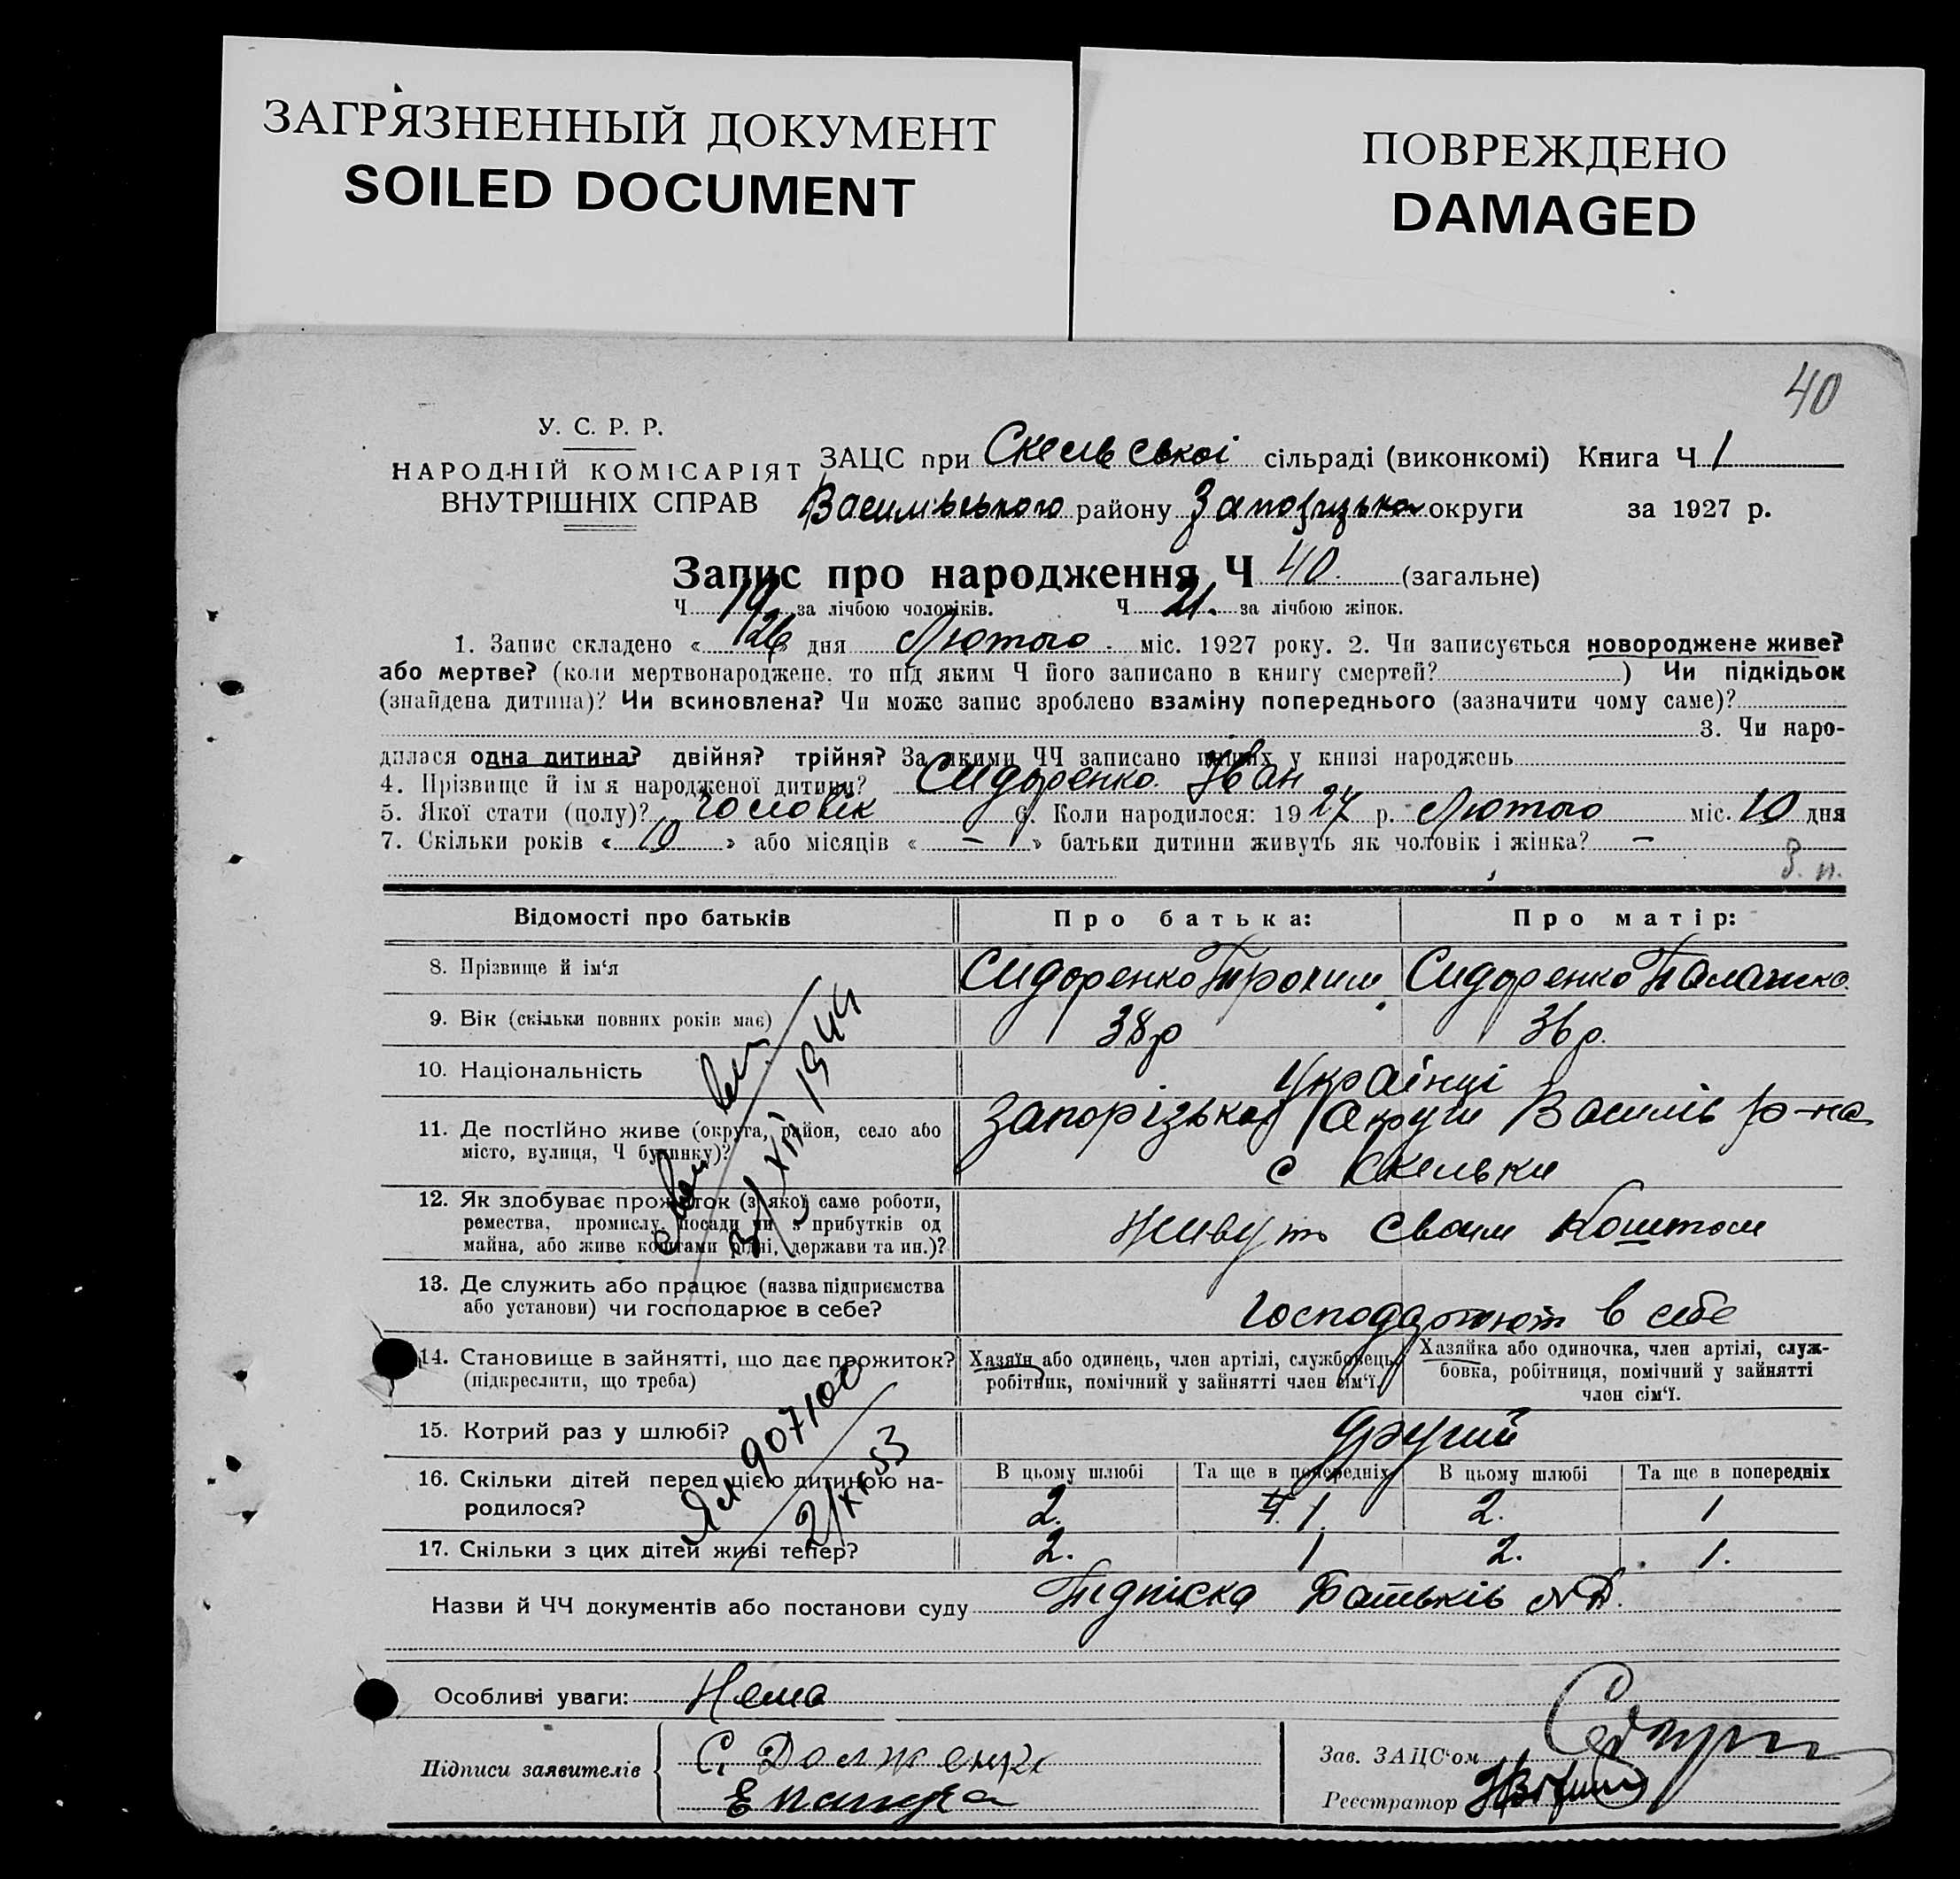 ЗАГРЯЗНЕННЫЙ ДОКУМЕНТ
SOILED DOCUMENT
ПОВРЕЖДЕНО
DAMAGED
40
У. С. Р. Р.
НАРОДНІЙ КОМІСАРІЯТ
ВНУТРІШНІХ СПРАВ
ЗАЦС при Скельської сільраді (виконкомі) Книга Ч 1
Василівського району Запорізької округи за 1927 р.
Запис про народження Ч 40. (загальне)
Ч 19 за лічбою чоловіків. Ч 21. за лічбою жінок.
1. Запис складено « 26 » дня Лютого міс. 1927 року. 2. Чи записується новороджене живе?
або мертве? (коли мертвонароджене, то під яким Ч його записано в книгу смертей? ) Чи підкідьок
(знайдена дитина)? Чи всиновлена? Чи може запис зроблено взаміну попереднього (зазначити чому саме)?
3. Чи наро-
дилася одна дитина? двійня? трійня? За якими ЧЧ записано інших у книзі народжень
4. Прізвище й ім'я народженої дитини? Сидоренко Іван
5. Якої стати (полу)? чоловік 6. Коли народилося: 1927 р. Лютого міс. 10 дня
7. Скільки років « 10 » або місяців « – » батьки дитини живуть як чоловік і жінка? –
Відомості про батьків Про батька: Про матір:
8. Прізвище й ім'я Сидоренко Трохим Сидоренко Палажка
9. Вік (скільки повних років має) 38 р 36 р.
10. Національність Українці
11. Де постійно живе (округа, район, село або
місто, вулиця, Ч будинку)? Запорізької Округи Василів р-на
с Скельки
12. Як здобуває прожиток (з якої саме роботи,
ремества, промислу, посади чи з прибутків од
майна, або живе коштами рідні, держави та ин.)? Живуть своїм коштом
13. Де служить або працює (назва підприємства
або установи) чи господарює в себе? Господарюют в себе
14. Становище в зайнятті, що дає прожиток?
(підкреслити, що треба)
Хазяїн або одинець, член артілі, службовець,
робітник, помічний у зайнятті член сім'ї.
Хазяйка або одиночка, член артілі, служ-
бовка, робітниця, помічний у зайнятті
член сім'ї.
15. Котрий раз у шлюбі? другий
16. Скільки дітей перед цією дитиною на-
родилося?
В цьому шлюбі Та ще в попередніх В цьому шлюбі Та ще в попередніх
2. 1. 2. 1
17. Скільки з цих дітей живі тепер? 2. 1 2. 1.
Назви й ЧЧ документів або постанови суду Підписка Батьків
Особливі уваги: Нема
Підписи заявителів
Зав. ЗАЦС'ом
Реєстратор
31/XII 1944
907100